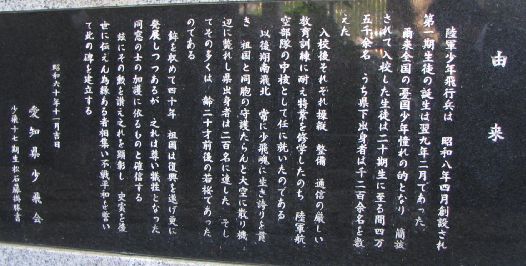 由来
陸軍少年飛行兵は 昭和八年四月創設され
第一期生徒の誕生は翌九年二月であった。
爾来全国の憂国少年憧れの的となり 簡抜
されて入校した生徒は二十期生に至る間四万
五千余名 うち県下出身者は千二百余名を数
えた
入校後それぞれ操縦 整備 通信の厳しい
教育訓練に耐え特業を修学したのち 陸軍航
空部隊の中核として任に就いたのである
以後翔南飛北 常に少飛魂に生き誇りを貫
き 祖国と同胞の守護たらんと大空に散り機
辺に斃れし県出身者は二百名に達した そし
てその多くは 齢二十才前後の若桜であった
のである
鉾を収めて四十年 祖国は復興を遂げ更に
発展しつつあるが 之れは尊い犠牲となった
同窓の士の加護に依るものと確信する
茲にその勲を讃えこれを顕彰し 史実を後
世に伝えん為縁ある者相集い不戦平和を誓い
て此の碑を建立する
昭和六十年十一月吉日
愛知県少飛会
少飛十七期生松石藤橋勝書